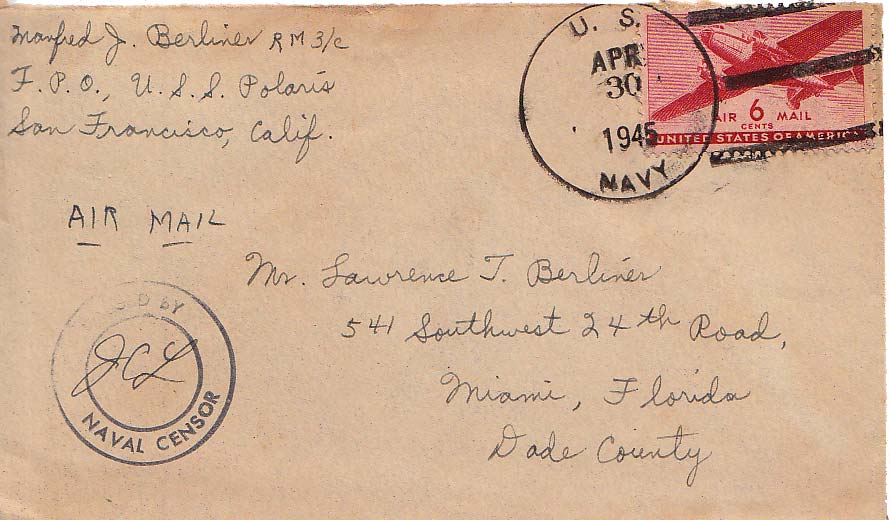 Manfred J. Berliner RM 3/c
F. P. O., U. S. S. Polaris
San Francisco, Calif.
U. S.
APR
30
1945
NAVY
AIR 6 MAIL
CENTS
UNITED STATES OF AMERICA
AIR MAIL
Mr. Lawrence T. Berliner
541 Southwest 24th Road,
Miami, Florida
Dade County
BY
JCL
NAVAL CENSOR